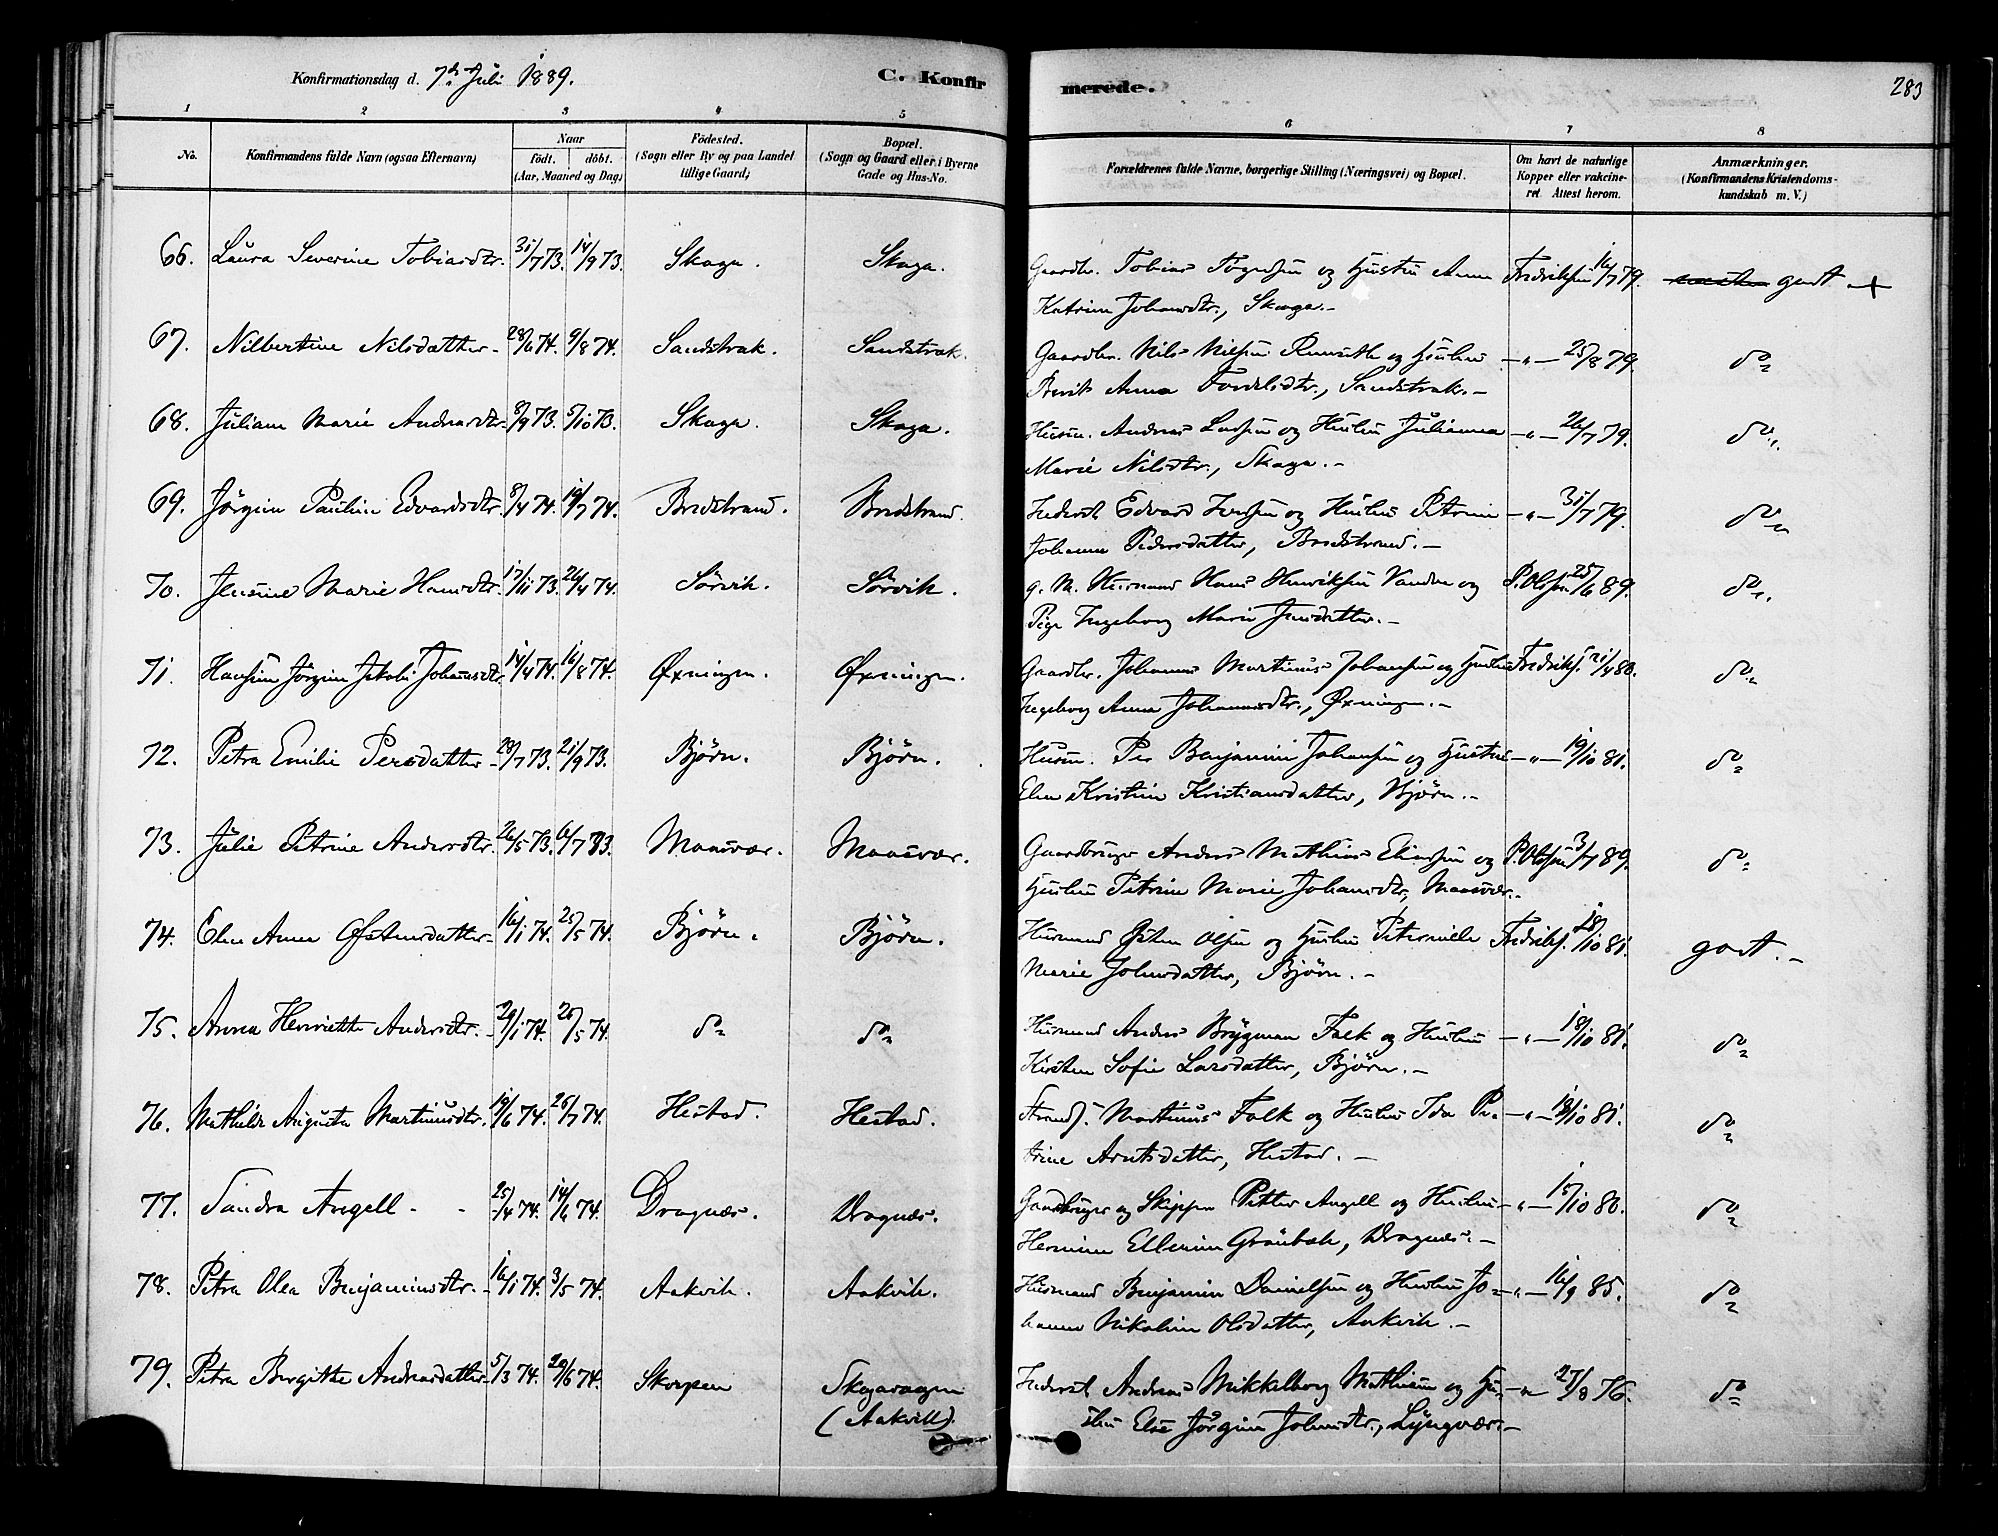 Konfirmationsdag d. 7de Juli 1889.
C. Konfirmerede.
283
1 2 3 4 5 6 7 8
No.
Konfirmandens fulde Navn (ogsaa Efternavn)
Naar
født. døbt.
(Aar, Maaned og Dag)
Födested.
(Sogn eller By og paa Landet
tillige Gaard)
Bopæl.
(Sogn og Gaard eller i Byerne
Gade og Hus-No.
Forældrenes fulde Navne, borgerlige Stilling (Næringsvei) og Bopæl.
Om havt de naturlige
Kopper eller vakcine-
ret Attest herom.
Anmærkninger.
(Konfirmandens Kristendoms-
kundskab m. V.)
66. Laura Severine Tobiasdtr. 31/7 73. 14/9 73. Skaga. Skaga. Gaardbr. Tobias Tognesen og Hustru Anna Fredriksen 16/7 79. godt +
Katrina Johansdtr., Skaga.-
67. Nilbertine Nilsdatter- 28/6 74. 9/8 74. Sandstrak. Sandstrak. Gaardbr. Nils Nielsen og Hustru -"- 25/8 79. do
Berit Anna Sandstrak.-
68. Juliane Marie Andreasdtr. 8/9 73. 5/10 73. Skaga. Skaga. Husm. Andreas Larsen og Hustru Julianna -"- 26/7 79. do
Marie Nilsdtr., Skaga.-
69. Jörgine Pauline Edvardsdtr. 8/4 74. 19/7 74. Bredstrand. Bredstrand. Inderst Edvard Iversen og Hustru Petrine -"- 31/7 79. do
Johanna Pedersdatter, Bredstrand.-
70. Jensine Marie Hansdtr. 17/11 73. 26/4 74. Sörvik. Sörvik. g. M. Husmand Hans Henriksen Vanden og P. Olssen 25/6 89. do
Pige Ingeborg Marie Jensdatter.-
71. Hansine Jörgine Jakobi Johansdtr. 14/4 74. 16/8 74. Øxningen. Øxningen. Gaardbr. Johannes Martinus Johansen og Hustru Fredriks. 21/4 80. do
Ingeborg Anna Johannesdtr., Øxningen.-
72. Petra Emilie Persdatter- 28/7 73. 21/9 73. Bjørn. Bjørn. Husm. Per Benjamin Johansen og Hustru -"- 19/10 81. do
Elen Kristine Kristiansdatter, Bjørn.-
73. Julie Petrine Andersdtr. 26/5 73. 6/7 73. Maasvær. Maasvær. Gaardbruger Anders Mathias Eliassen og P. Olssen 3/7 89. do
Hustru Petrine Marie Johansdtr, Maasvær.-
74. Elen Anna Østensdatter- 16/1 74. 25/5 74. Bjørn. Bjørn. Husmand Østen Olsen og Hustru Peternille Fredriks. 18/10 81. godt.-
Marie Johnsdatter, Bjørn.-
75. Anna Henriette Andersdtr.- 29/1 74. 25/5 74. do do Husmand Anders Brygman Falk og Hustru -"- 18/10 81. do
Kirsten Sofie Larsdatter, Bjørn.-
76. Mathilde Augusta Martinusdtr. 19/6 74. 26/7 74. Hestad. Hestad. Strands. Martinus Falk og Hustru Ida Pe- -"- 18/10 81. do
trine Arntsdatter, Hestad.-
77. Sandra Angell - - 25/4 74. 14/6 74. Dragnæs. Dragnæs. Gaardbruger og Skipper Petter Angell og Hustru -"- 15/10 80. do
Hermine Ellerine Grönbech, Dragnæs.-
78. Petra Olea Benjaminsdtr.- 16/1 74. 3/5 74. Aakvik. Aakvik. Husmand Benjamin Danielsen og Hustru Jo- -"- 16/9 85. do
hanna Nikoline Olsdatter, Aakvik.-
79. Petra Birgitte Andreasdatter 5/3 74. 29/6 74. Skorpen Skagavaagen Inderst Andreas Mikkelborg Mathisen og Hu- -"- 27/8 76. do
(Aakvik). stru Else Jörgine Johansdtr., Lyngvær.-